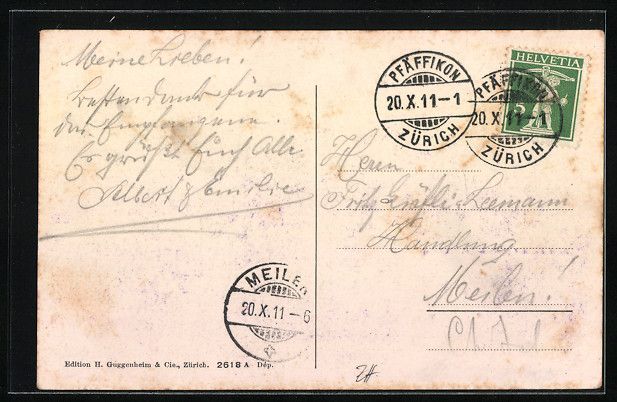 Meine Lieben!
Besten Dank für
das Empfangene.
Es grüßt Euch Alle
Albert & Emilie
PFÄFFIKON
20.X.11-1
ZÜRICH
PFÄFFIKON
20.X.11-1
ZÜRICH
HELVETIA
5
Herrn
Fritz Leemann
Handlung
Meilen!
MEILEN
20.X.11-6
Edition H. Guggenheim & Cie., Zürich. 2618 A Dép.
ZH